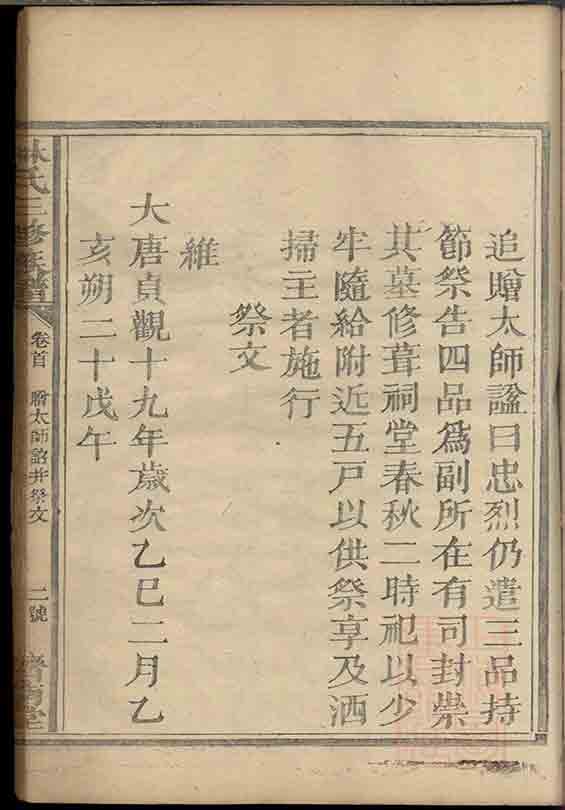 追贈太師諡曰忠烈仍遣三品持
節祭告四品爲副所在有司封崇
其墓修葺祠堂春秋二時祀以少
牢隨給附近五戸以供祭享及洒
掃主者施行
祭文
維
大唐貞觀十九年歲次乙巳二月乙
亥朔二十戊午
林氏三修族譜
卷首
贈太師詔并祭文
二號